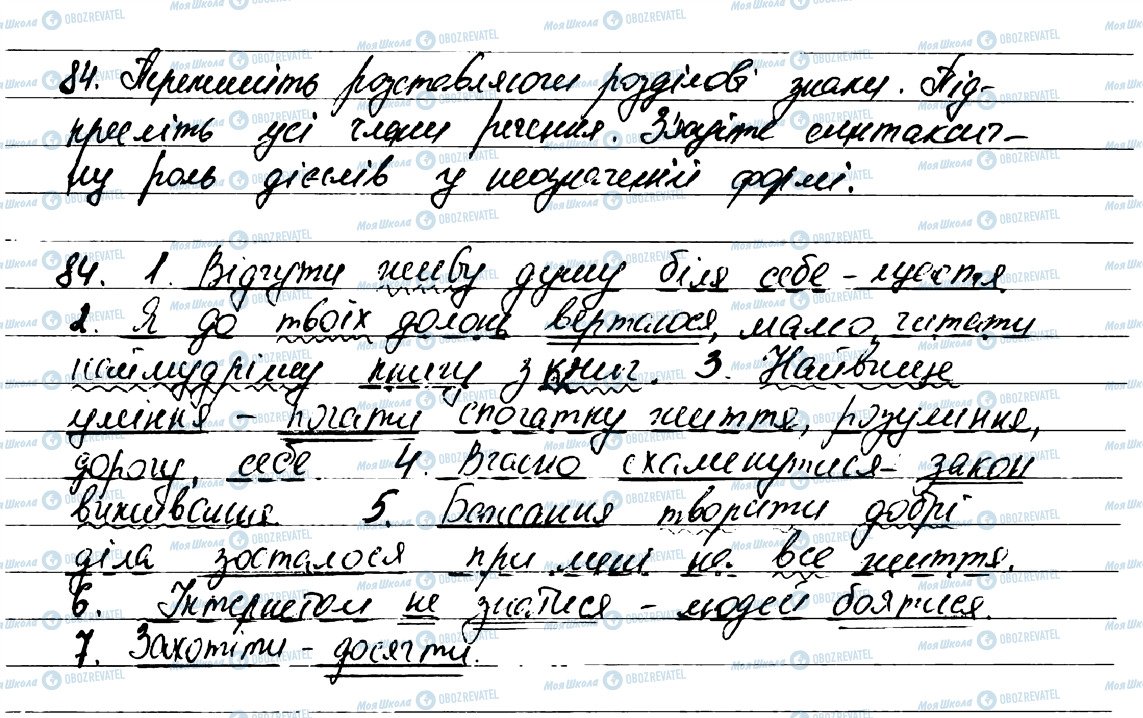 84. Перепишіть розставляючи розділові знаки. Під-
кресліть усі члени речення. З'ясуйте синтаксич-
ну роль дієслів у неозначеній формі.
84. 1. Відчути живу душу біля себе - щастя
2. Я до твоїх долонь вертаюся, мамо, читати
наймудрішу книгу з книг. 3. Найвище
уміння - почати спочатку життя, розуміння,
дорогу, себе. 4. Вчасно схаменутися - закон
виживання 5. Бажання творити добрі
діла зосталося при мені на все життя.
6. Інтернетом не знатися - людей боятися.
7. Захотіти - досягти.